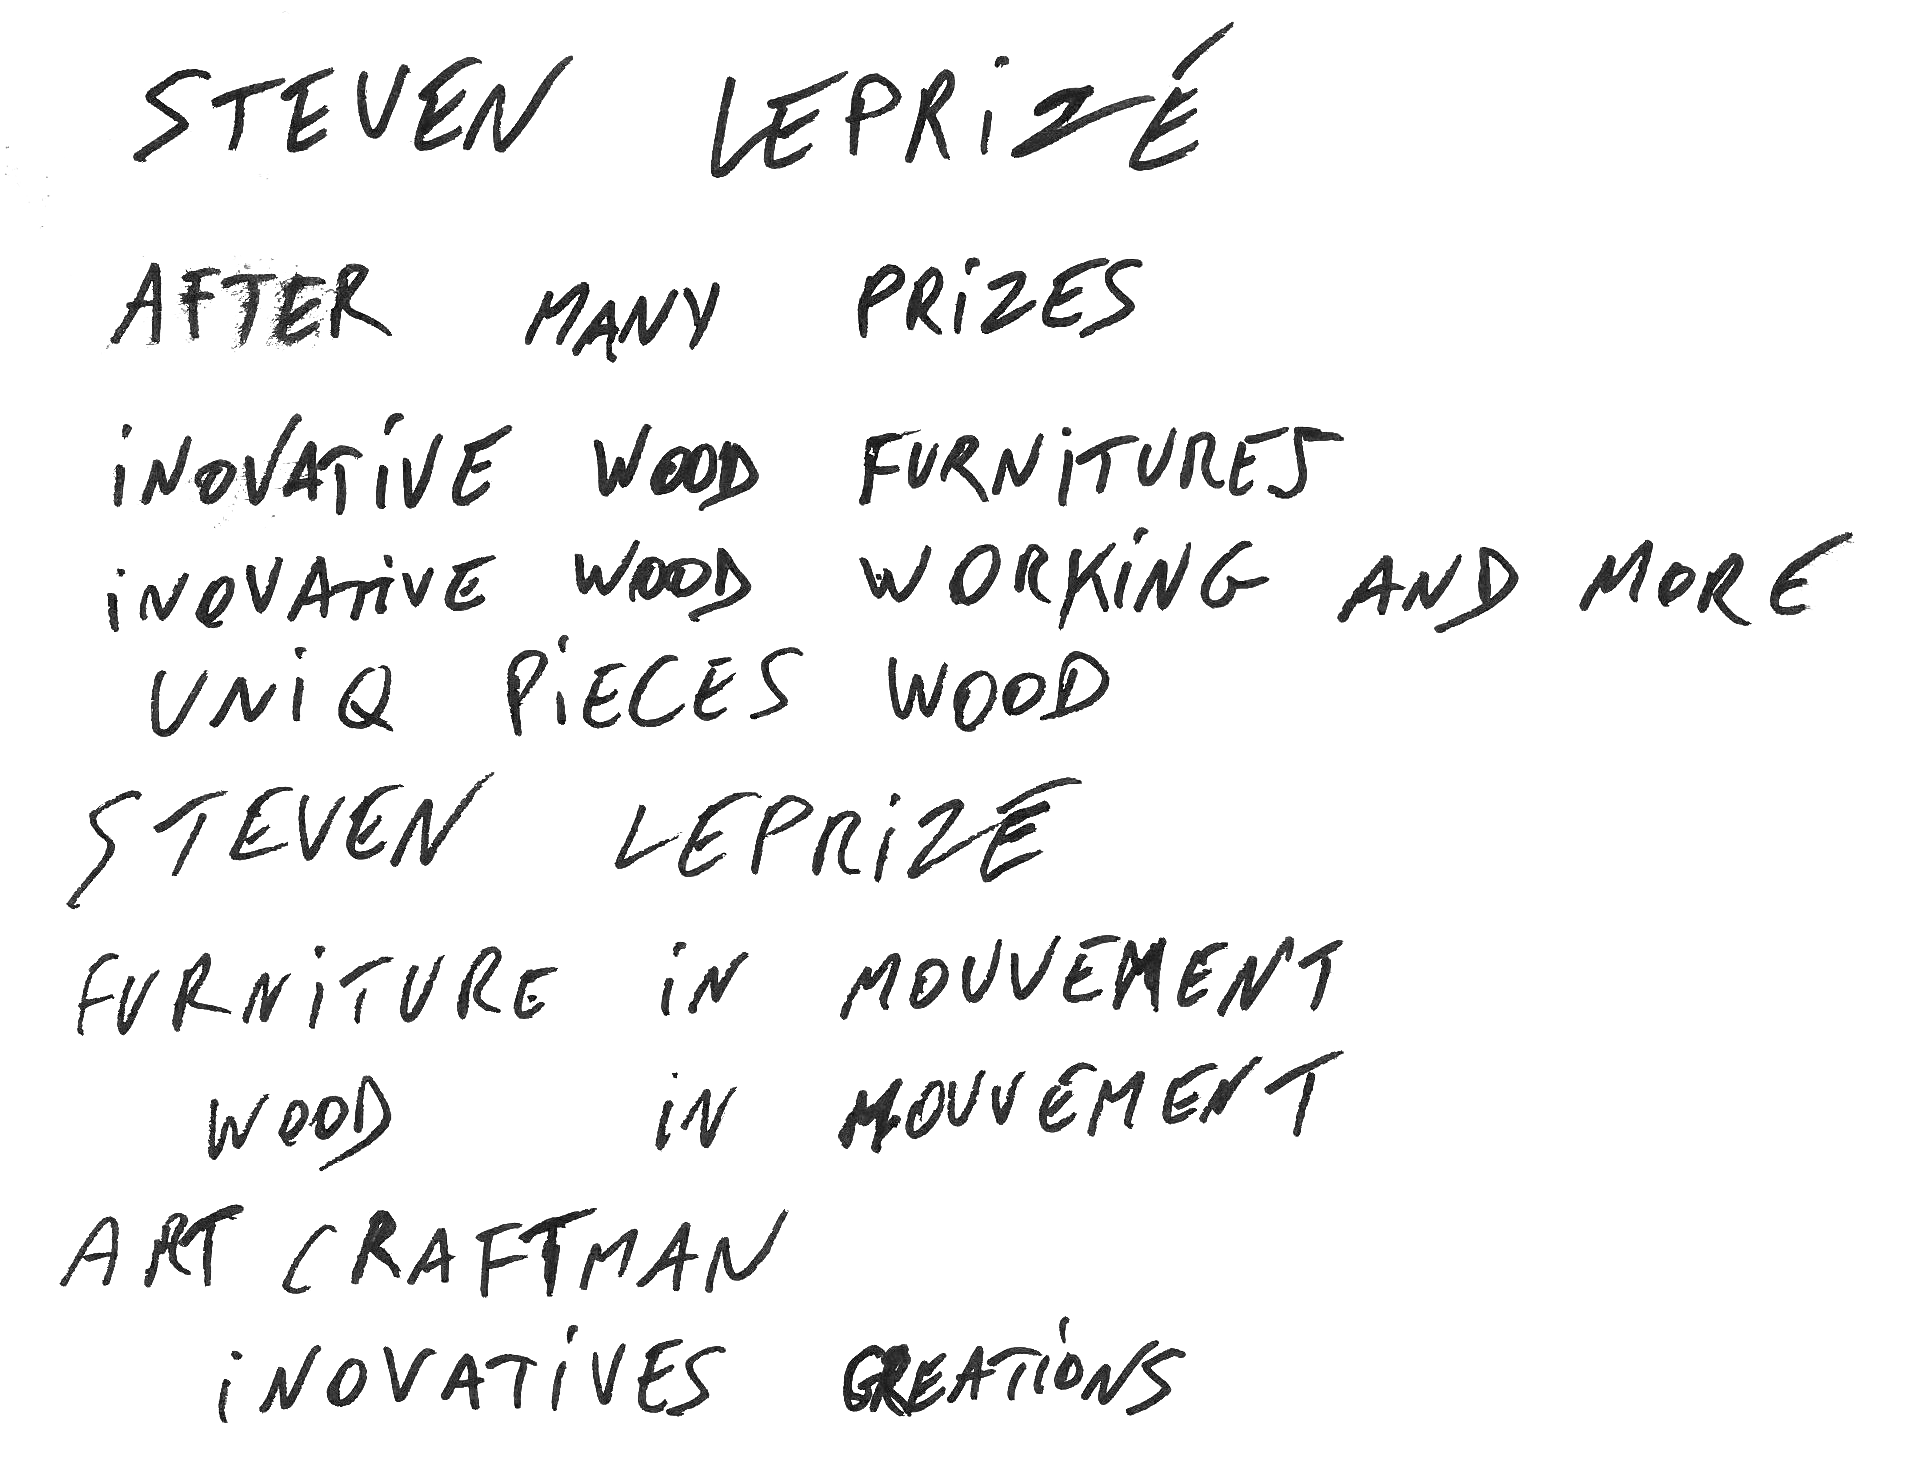 STEVEN LEPRIZÉ
AFTER MANY PRIZES
iNOVATiVE WOOD FURNiTURES
iNOVATiVE WOOD WORKiNG AND MORE
UNiQ PiECES WOOD
STEVEN LEPRiZE
FURNiTURE iN MOUVEMENT
WOOD iN MOUVEMENT
ART CRAFTMAN
iNOVATiVES CREATiONS